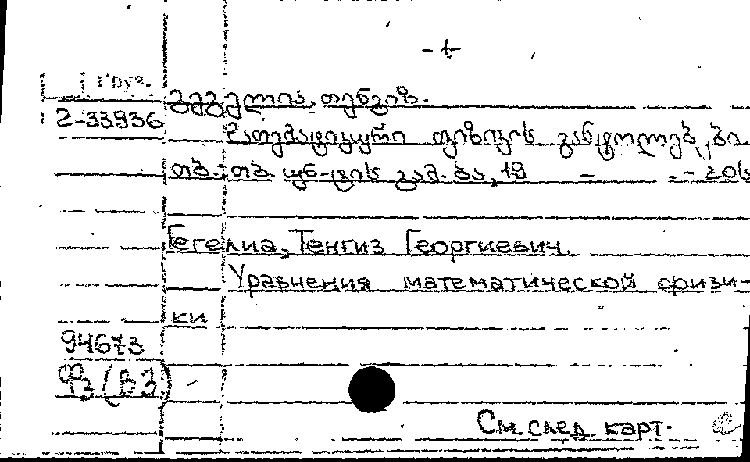 -t
Груз.
გეგელია, თენგიზ.
2-33936
მათემატიკური ფიზიკის განტოლებები
თბ., თბ. უნ-ტის გამ-ბა, 19 - . - 20ს
Гегелиа, Тенгиз Георгиевич.
Уравнения математической физи-
ки
94673
Ф2 (В3)
См. след. карт.